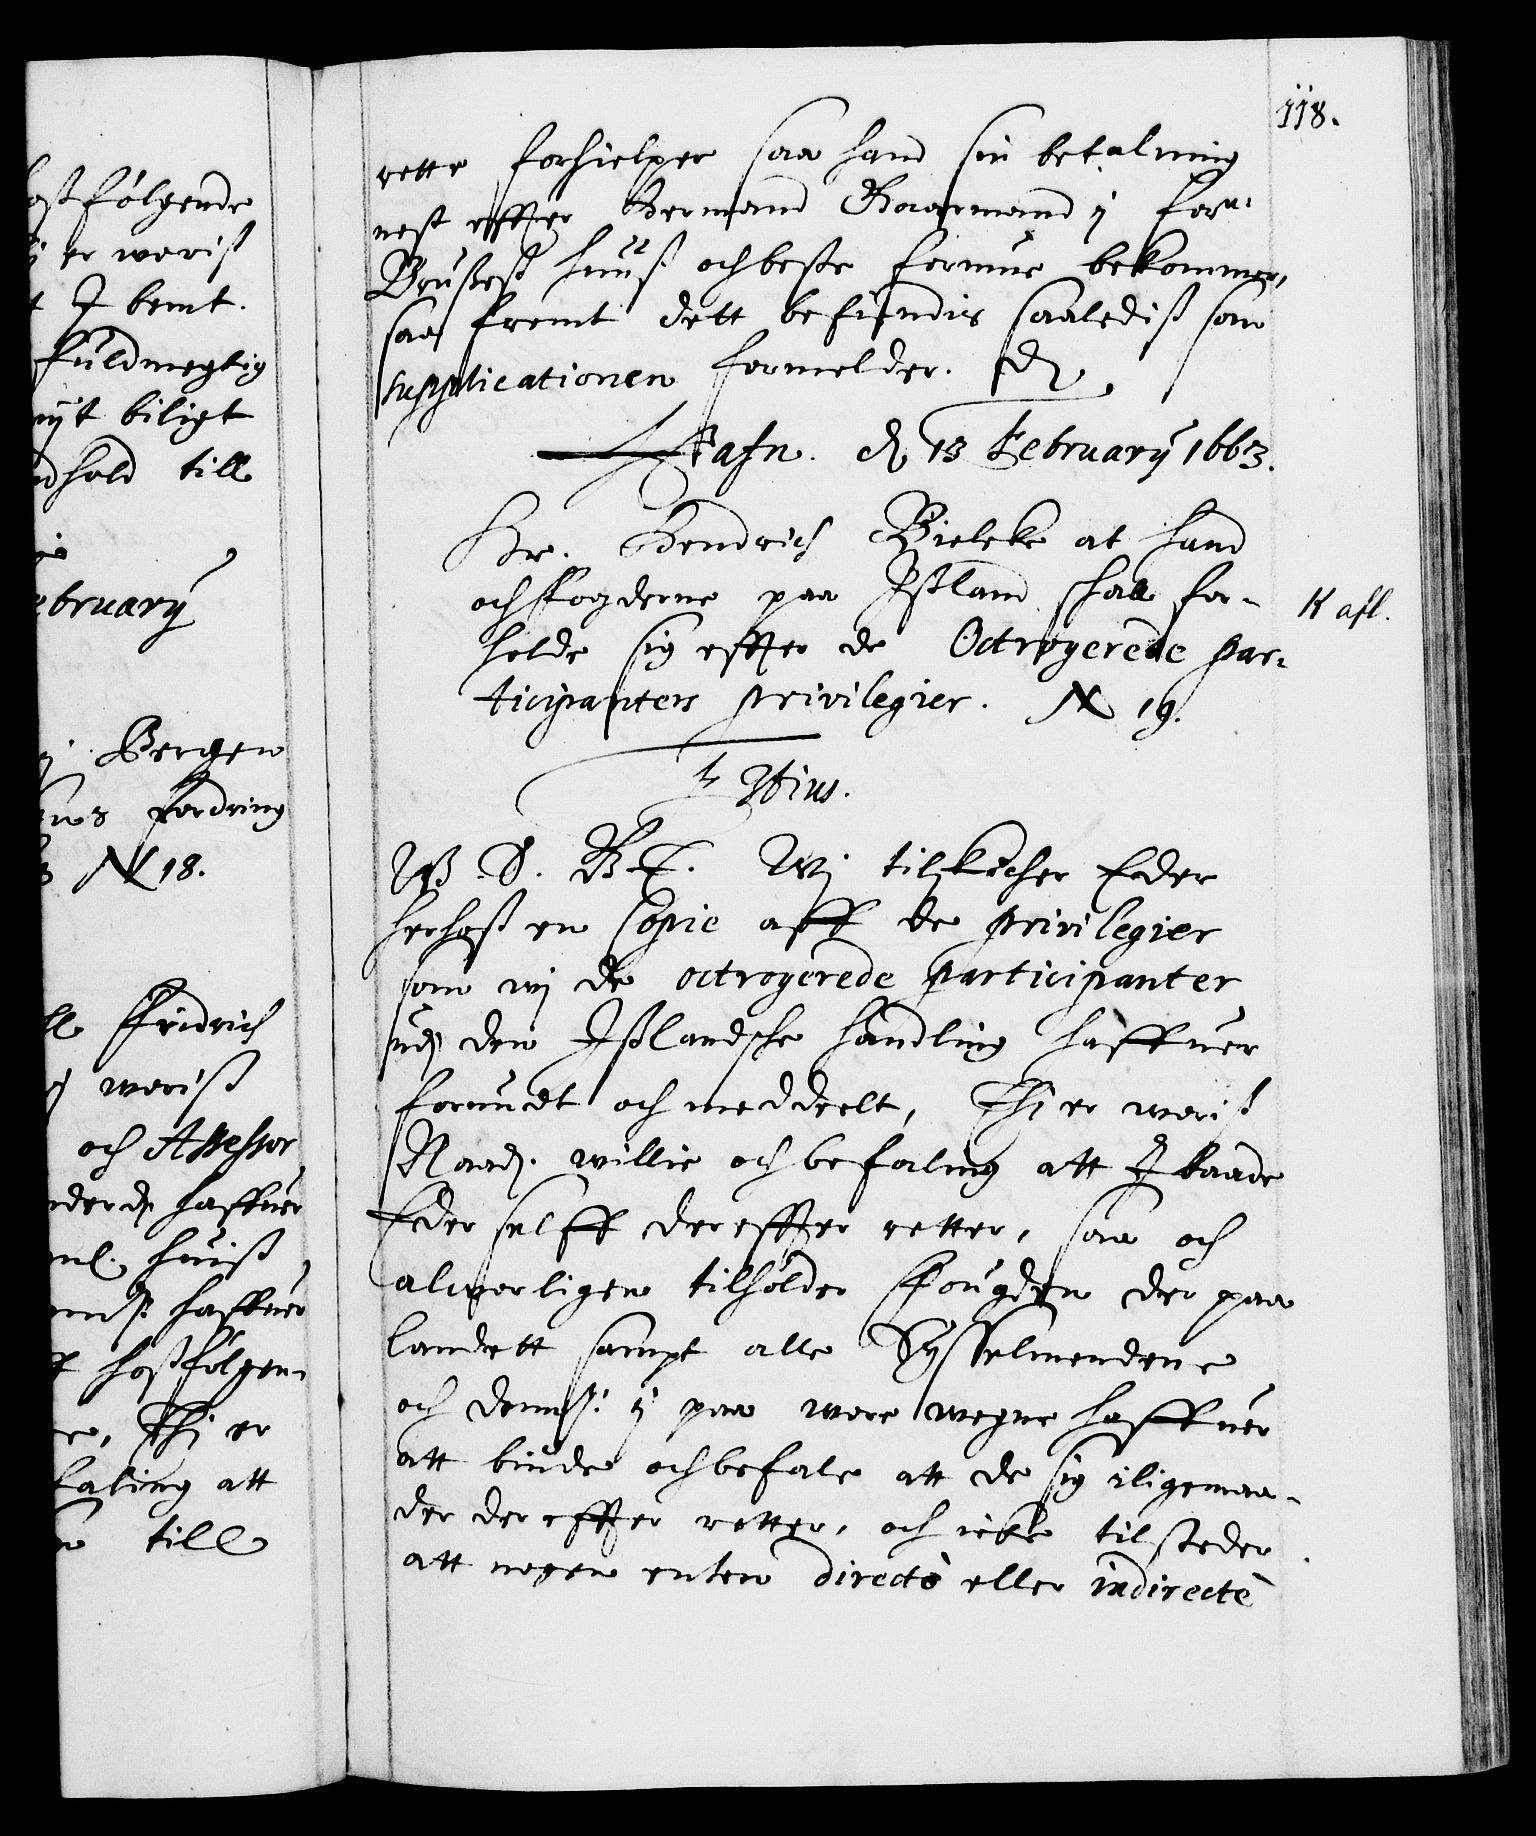 oßfølgende
er woris
I bemt.
fuldmegtig
nÿt biligt
dhold till
ebruarÿ
Bergen
ns fordring
N 18.
Fridrich
woriß
och Assessor
nderd. haffuer
huiß
haffuer
hoßfølgen-
Thi er
faling att
till
118.
rette forhielper saa hand sin betalning
nest effter Hermand Gaarmand ÿ forn:
Brußeß huuß och beste formue bekommer,
saa fremt dett befindis saalediß som
supplicationen formelder. D
Hafn. d 13 Februarÿ 1663.
Hr. Hendrich Bielcke at hand
och fogderne paa Ißland skall for-
holde sig effter de Octroyerede par-
ticipanters privilegier. N 19.
K afl.
F 3tius.
W. S. G. T. Wi tilskicher Eder
herhoß en Copie aff de privilegier
som wi de octroyerede participanter
udj den Ißlandske handling haffuer
forundt och meddeelt, Thi er woriß
Naad. willie och befaling att I baade
Eder selff dereffter retter, saa och
alworligen tilholder Fougden der paa
landett sampt alle Sysselmendene
och dennß: ÿ paa wore wegne haffuer
att biude och befale att de sig iligemaa-
der dereffter retter, och icke tilsteder
att nogen enten directè eller indirectè